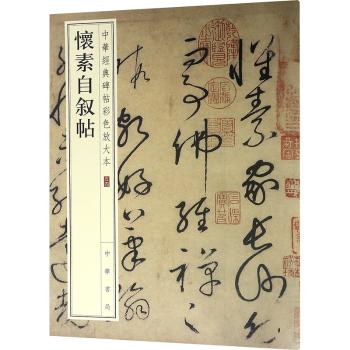 中華經典碑帖彩色放大本
懷素自叙帖
中華書局
懷素家長沙
事佛經禪之
暇頗好筆翰